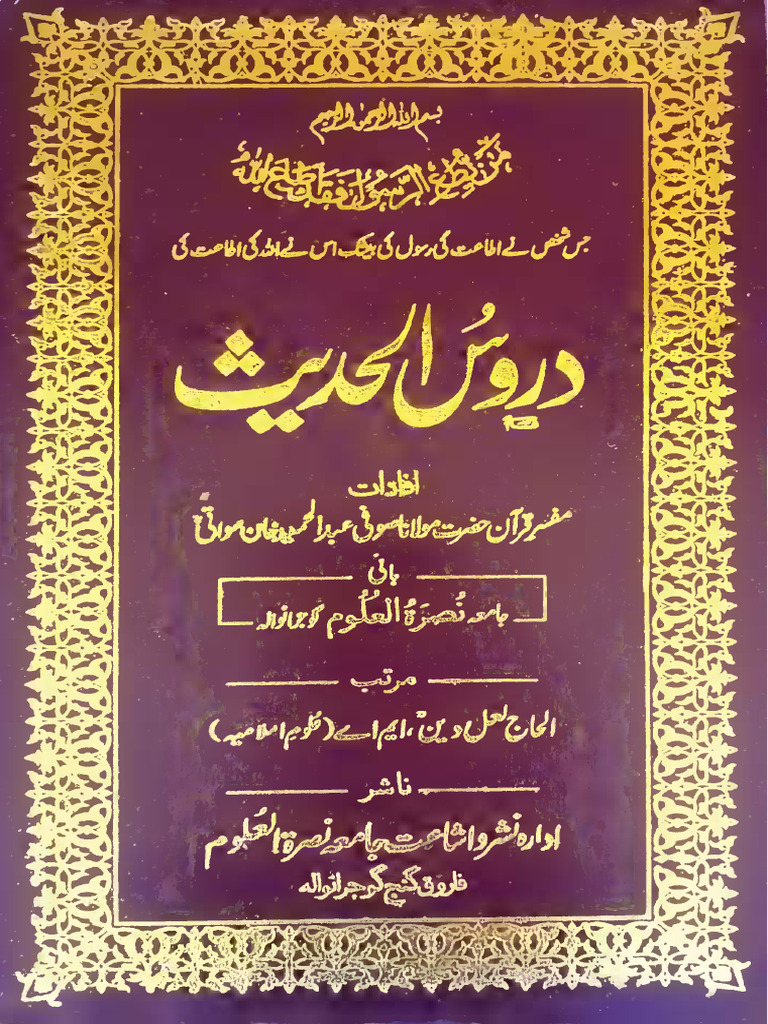 بسم اللہ الرحمن الرحیم
مَنْ يُّطِعِ الرَّسُوْلَ فَقَدْ اَطَاعَ اللّٰهَ
جس شخص نے اطاعت کی رسول کی بیشک اس نے اللہ کی اطاعت کی
دروسُ الحدیث
افادات
مفسر قرآن حضرت مولانا صوفی عبدالحمید خان سواتیؒ
بانی
جامعہ نُصرَۃُ العلُوم گوجرانوالہ
مرتب
الحاج لعل دینؒ، ایم اے (علوم اسلامیہ)
ناشر
ادارہ نشر و اشاعت جامعہ نصرۃ العلُوم
فاروق گنج گوجرانوالہ